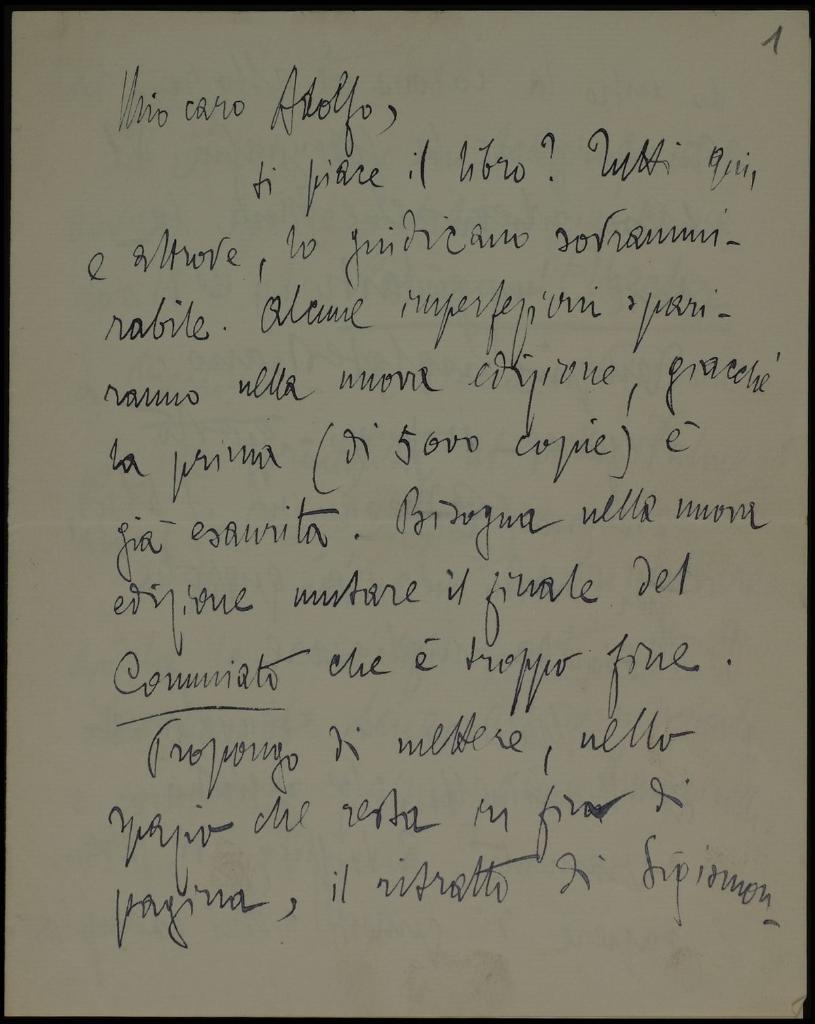 1
Mio caro Adolfo,
ti piace il libro? Tutti qui,
e altrove, lo giudicano sovrammi-
rabile. Alcune imperfezioni spari-
ranno nella nuova edizione, giacché
la prima (di 5000 copie) è
già esaurita. Bisogna nella nuova
edizione mutare il finale del
Commiato che è troppo fine.
Propongo di mettere, nello
spazio che resta in fine di
pagina, il ritratto di Sigismon-